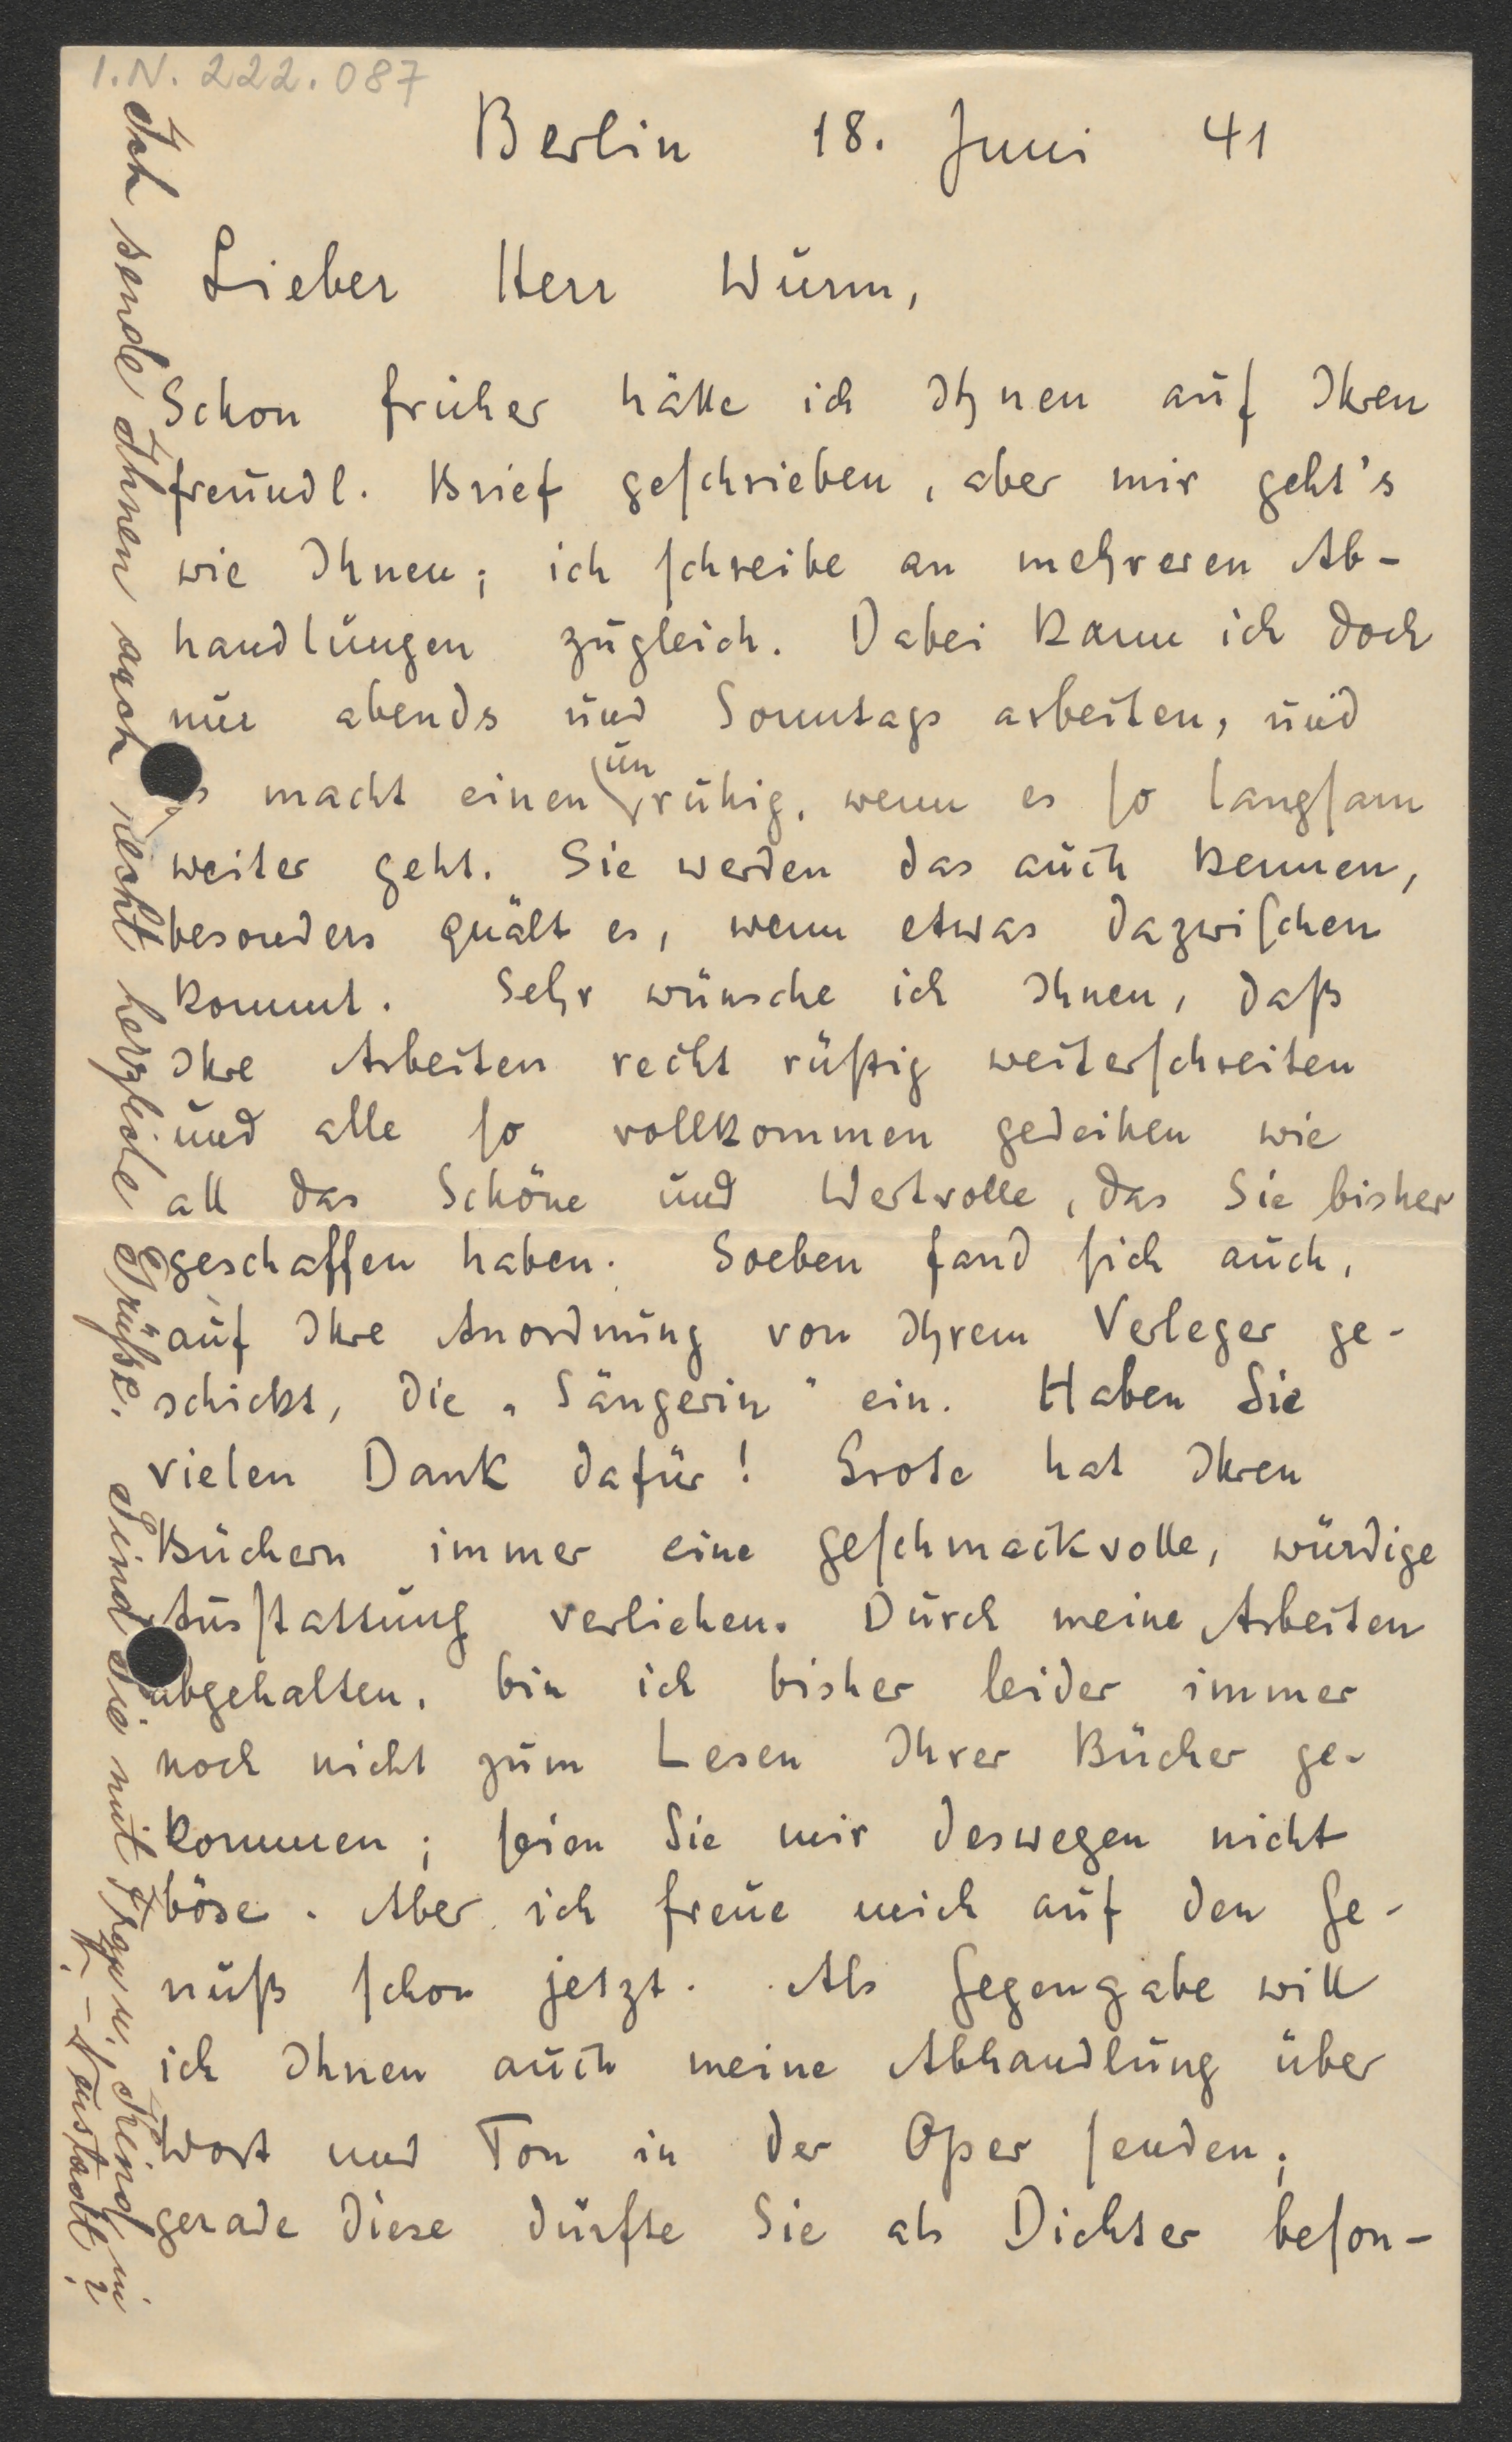 I.N. 222.087
Berlin 18. Juni 41
Lieber Herr Wurm,
Schon früher hätte ich Ihnen auf Ihren
freundl. Brief geschrieben, aber mir geht's
wie Ihnen; ich schreibe an mehreren Ab-
handlungen zugleich. Dabei kann ich doch
nur abends und Sonntags arbeiten, und
s macht einen unruhig, wenn es so langsam
weiter geht. Sie werden das auch kennen,
besonders quält es, wenn etwas dazwischen
kommt. Sehr wünsche ich Ihnen, daß
Ihre Arbeiten recht rüstig weiterschreiten
und alle so vollkommen gedeihen wie
all das Schöne und Wertvolle, das Sie bisher
geschaffen haben. Soeben fand sich auch,
auf Ihre Anordnung von Ihrem Verleger ge-
schickt, die „Sängerin" ein. Haben Sie
vielen Dank dafür! Grote hat Ihren
Büchern immer eine geschmackvolle, würdige
Ausstattung verliehen. Durch meine Arbeiten
abgehalten, bin ich bisher leider immer
noch nicht zum Lesen Ihrer Bücher ge-
kommen; seien Sie mir deswegen nicht
böse. Aber ich freue mich auf den Ge-
nuß schon jetzt. Als Gegengabe will
ich Ihnen auch meine Abhandlung über
Wort und Ton in der Oper senden;
gerade diese dürfte Sie als Dichter beson-
Ich sende Ihnen auch recht herzliche Grüße. Sind Sie mit Frau u. Kind in